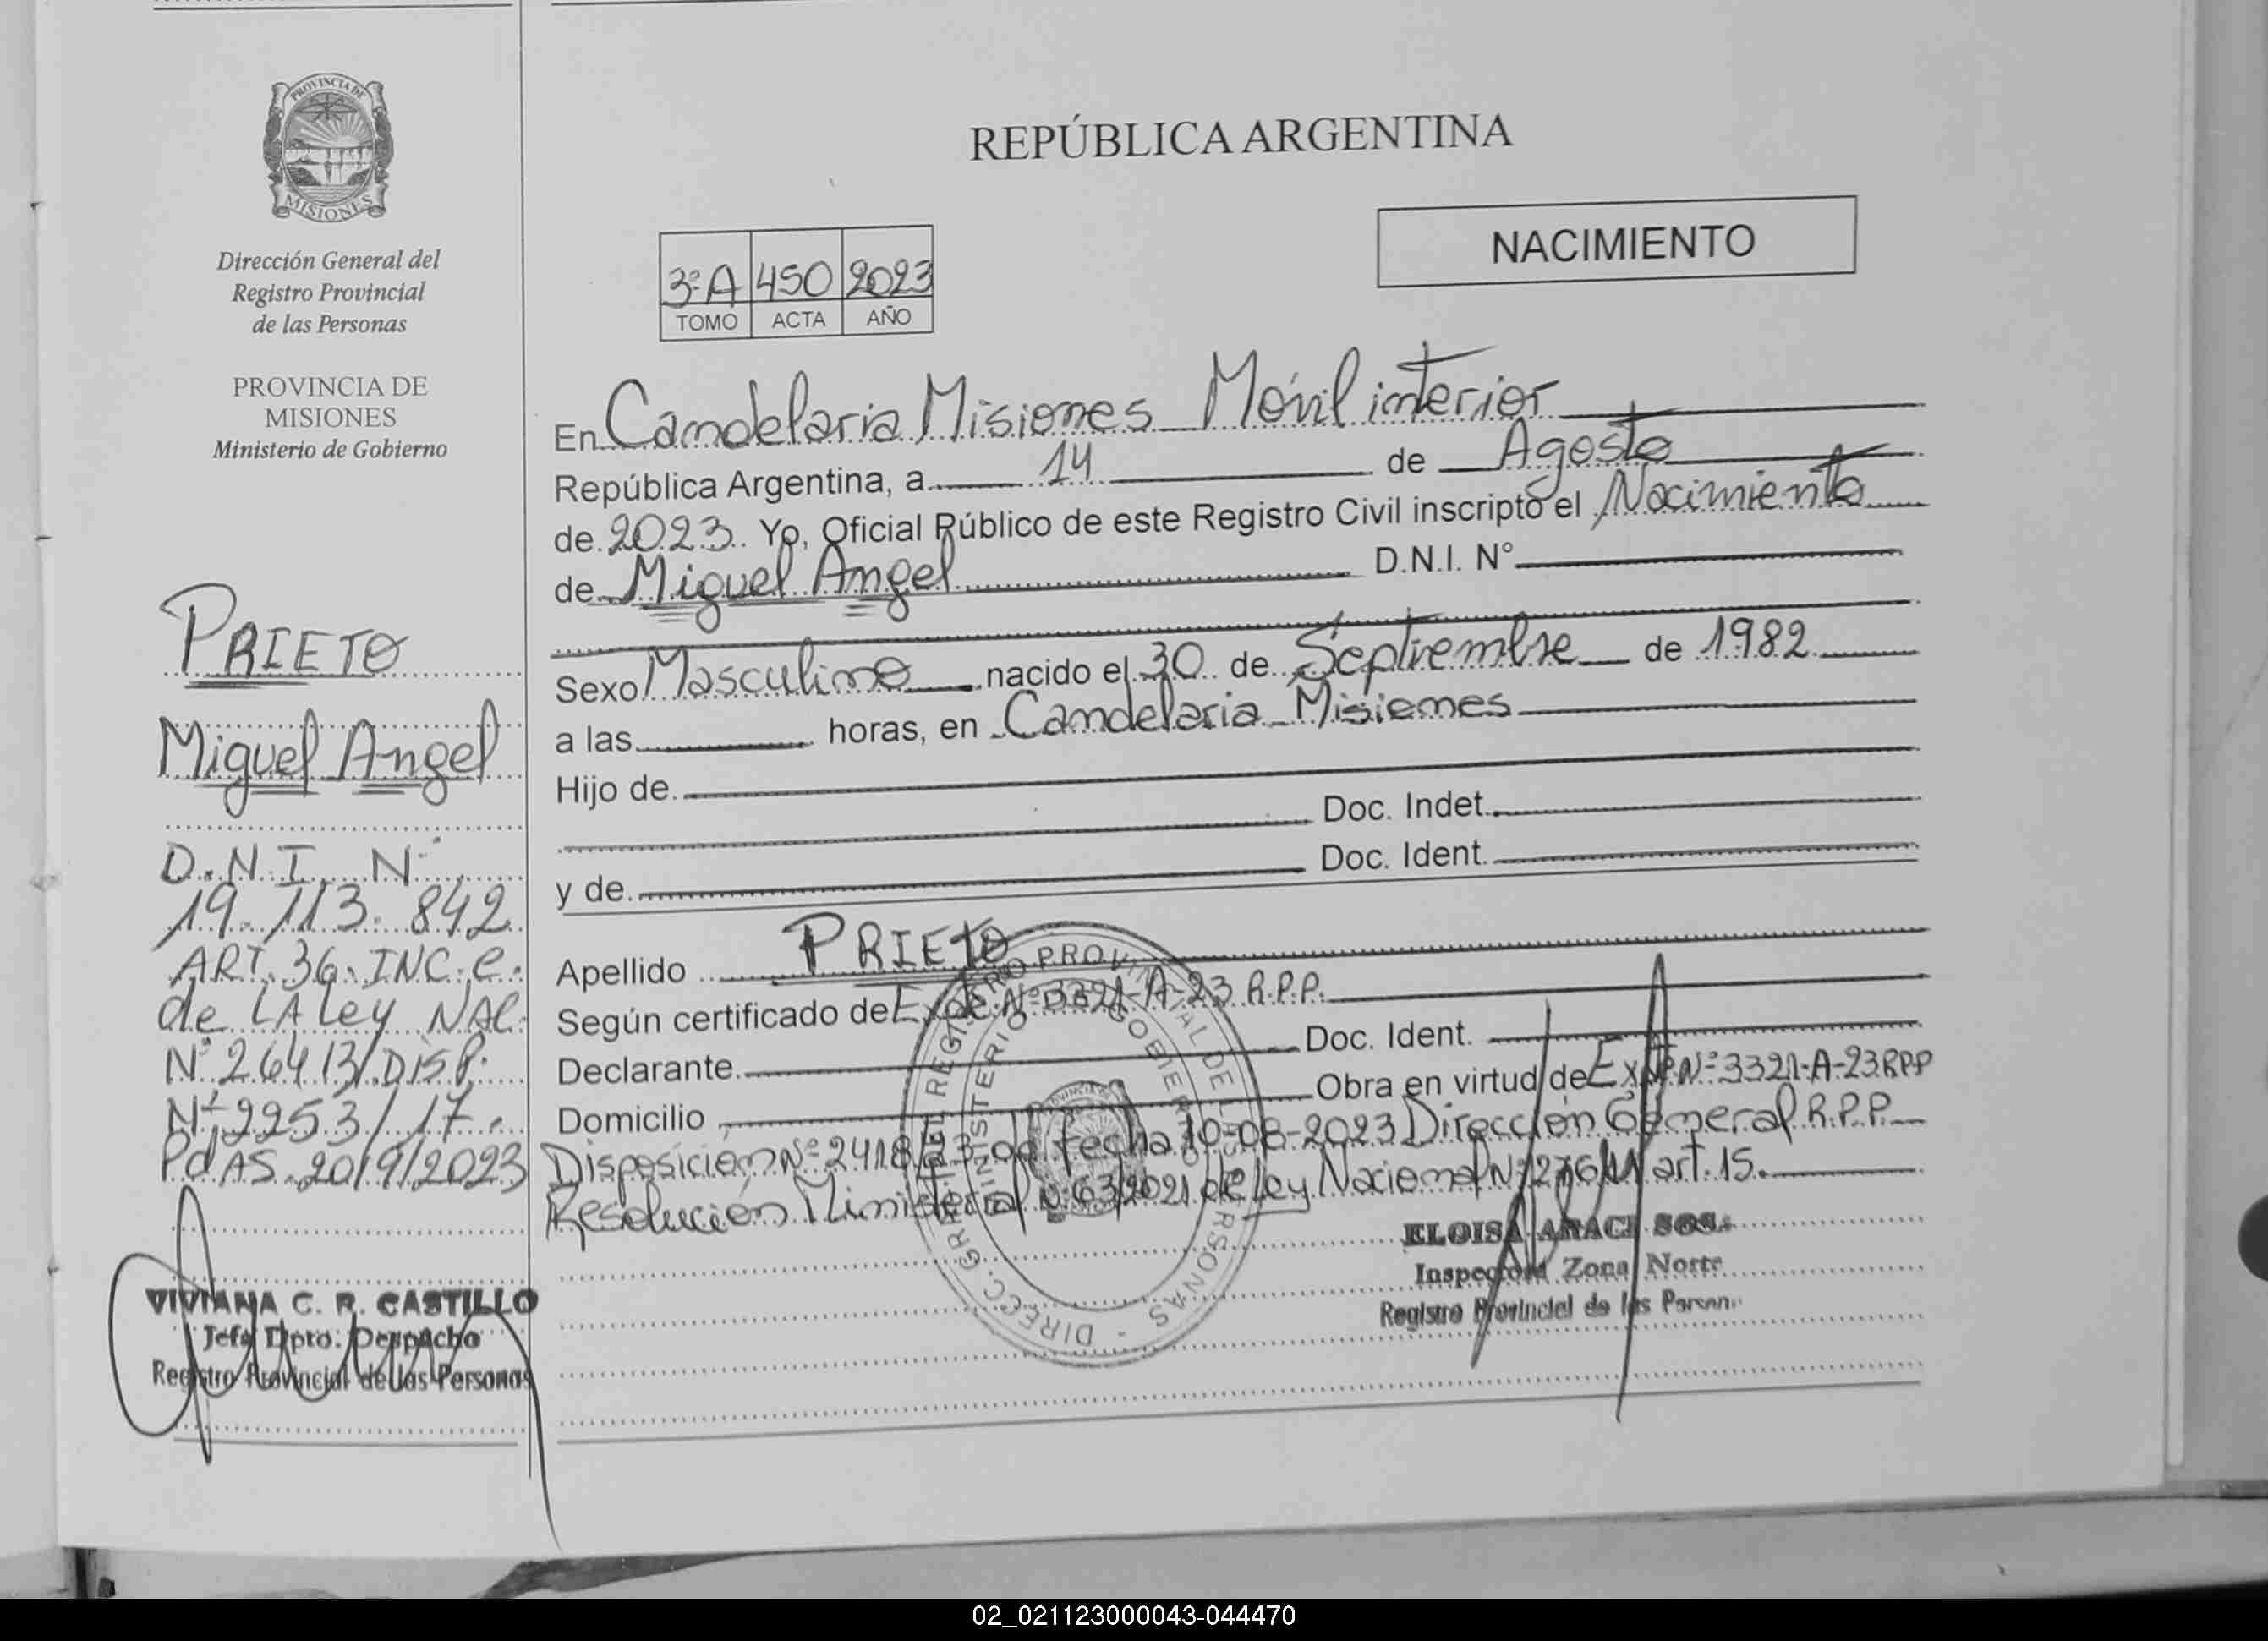 PROVINCIA DE
MISIONES
Dirección General del
Registro Provincial
de las Personas
PROVINCIA DE
MISIONES
Ministerio de Gobierno
PRIETO
Miguel Angel
D.N.I. Nº
19.113.842
ART. 36. INC. C.
de LA Ley NAC.
Nº 26413/DISP.
Nº 2253/17.
PdAS. 20/9/2023
VIVIANA C. R. CASTILLO
Jefa Dpto. Despacho
Registro Provincial de las Personas
REPÚBLICA ARGENTINA
NACIMIENTO
3ºA 450 2023
TOMO ACTA AÑO
En Candelaria Misiones Móvil interior
República Argentina, a 14 de Agosto
de 2023. Yo, Oficial Público de este Registro Civil inscripto el Nacimiento
de Miguel Angel D.N.I. N°
Sexo Masculino nacido el 30 de Septiembre de 1982
a las horas, en Candelaria Misiones
Hijo de
Doc. Indet.
y de Doc. Ident.
Apellido PRIETO
Según certificado de Expte. Nº 3321-A-23 R.P.P.
Declarante Doc. Ident.
Domicilio Obra en virtud de Expte Nº 3321-A-23 RPP
Disposición Nº 2418/23 de Fecha 10-08-2023 Dirección General R.P.P.
Resolución Ministerial Nº 63/2021 de Ley Nacional Nº art. 15.
DIRECC. GRAL. DEL REGISTRO PROVINCIAL DE LAS PERSONAS -
MINISTERIO GOBIERNO
ELOISA ARACI SOSA
Inspectora Zona Norte
Registro Provincial de las Person
02_021123000043-044470